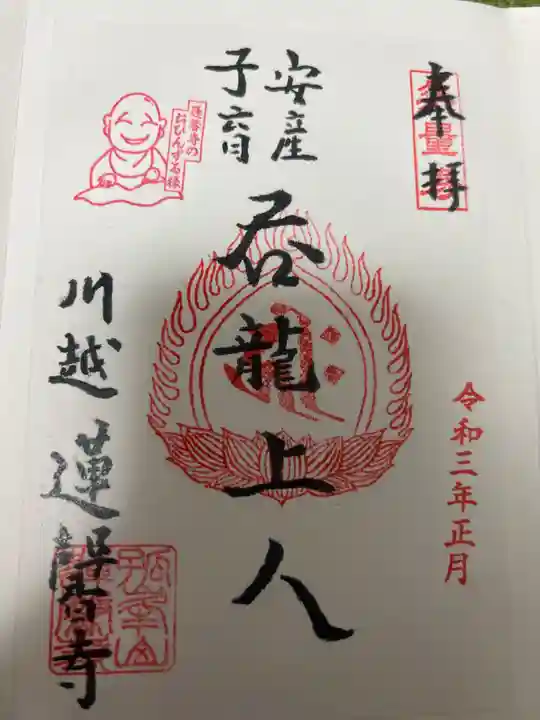 奉拝
令和三年正月
安産
子育
呑龍上人
蓮馨寺の
おびんずる様
川越 蓮馨寺